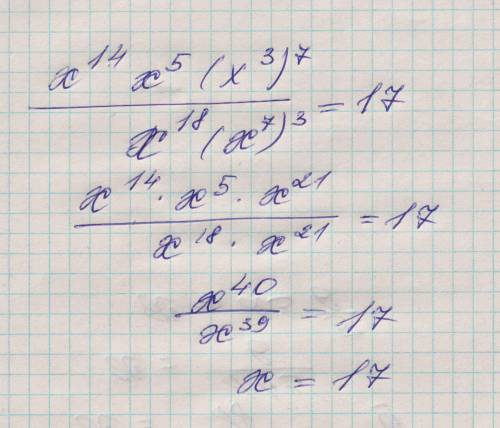 x^14 x^5 (x^3)^7 / x^18 (x^7)^3 = 17
x^14 · x^5 · x^21 / x^18 · x^21 = 17
x^40 / x^39 = 17
x = 17